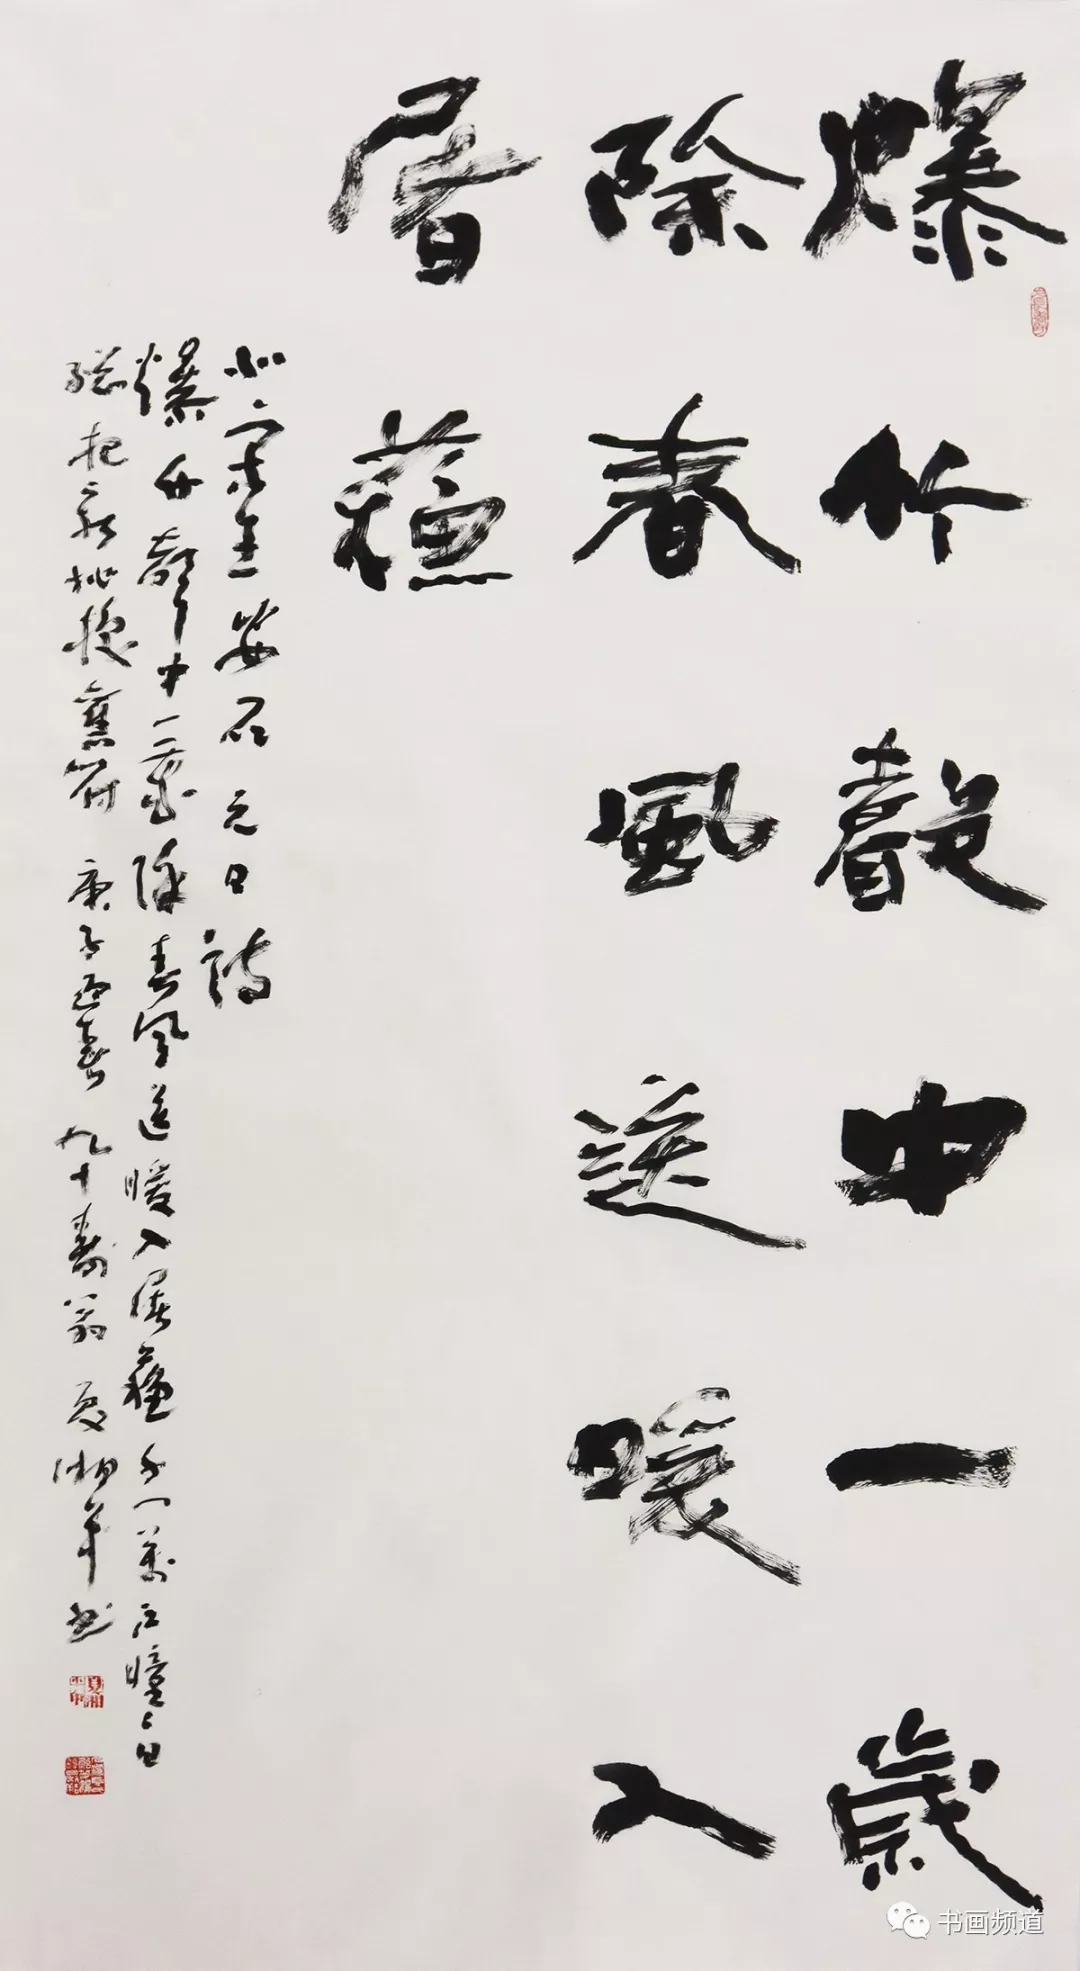 爆竹聲中一歲
除春風送暖入
屠蘇
北宋王安石元日詩
爆竹聲中一歲除春風送暖入屠蘇千門萬戶曈曈日
總把新桃換舊符 庚子迎春 九十壽翁 夏湘平書
书画频道